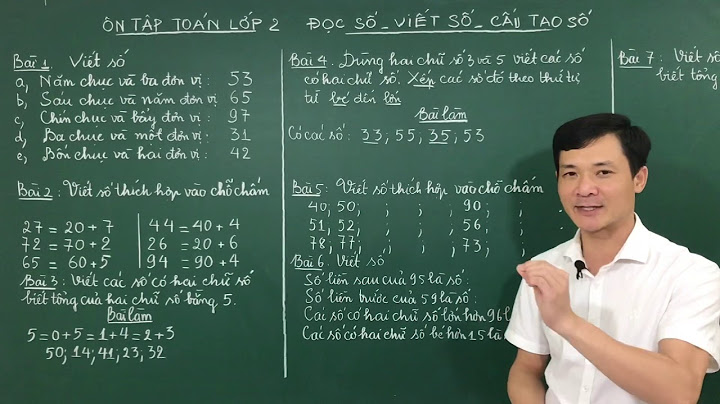 ÔN TẬP TOÁN LỚP 2 ĐỌC SỐ - VIẾT SỐ - CẤU TẠO SỐ
Bài 1. Viết số
a, Năm chục và ba đơn vị: 53
b, Sáu chục và năm đơn vị 65
c, Chín chục và bảy đơn vị: 97
d, Ba chục và một đơn vị: 31
e, Bốn chục và hai đơn vị: 42
Bài 2: Viết số thích hợp vào chỗ chấm
27 = 20 + 7 44 = 40 + 4
72 = 70 + 2 26 = 20 + 6
65 = 60 + 5 94 = 90 + 4
Bài 3: Viết các số có hai chữ số
biết tổng của hai chữ số bằng 5.
Bài làm
5 = 0 + 5 = 1 + 4 = 2 + 3
50; 14; 41; 23; 32
Bài 4. Dùng hai chữ số 3 và 5 viết các số
có hai chữ số. Xếp các số đó theo thứ tự
từ bé đến lớn
Bài làm
Có các số: 33; 55; 35; 53
Bài 5: Viết số thích hợp vào chỗ chấm
40, 50; ; ; ; 90; ;
51, 52; ; ; ; 56; ;
78, 77; ; ; ; 73; ;
Bài 6. Viết số
Số liền sau của 95 là số:
Số liền trước của 59 là số:
Các số có hai chữ số lớn hơn 96 l
Các số có hai chữ số bé hơn 15 là
Bài 7: Viết số
biết tổng